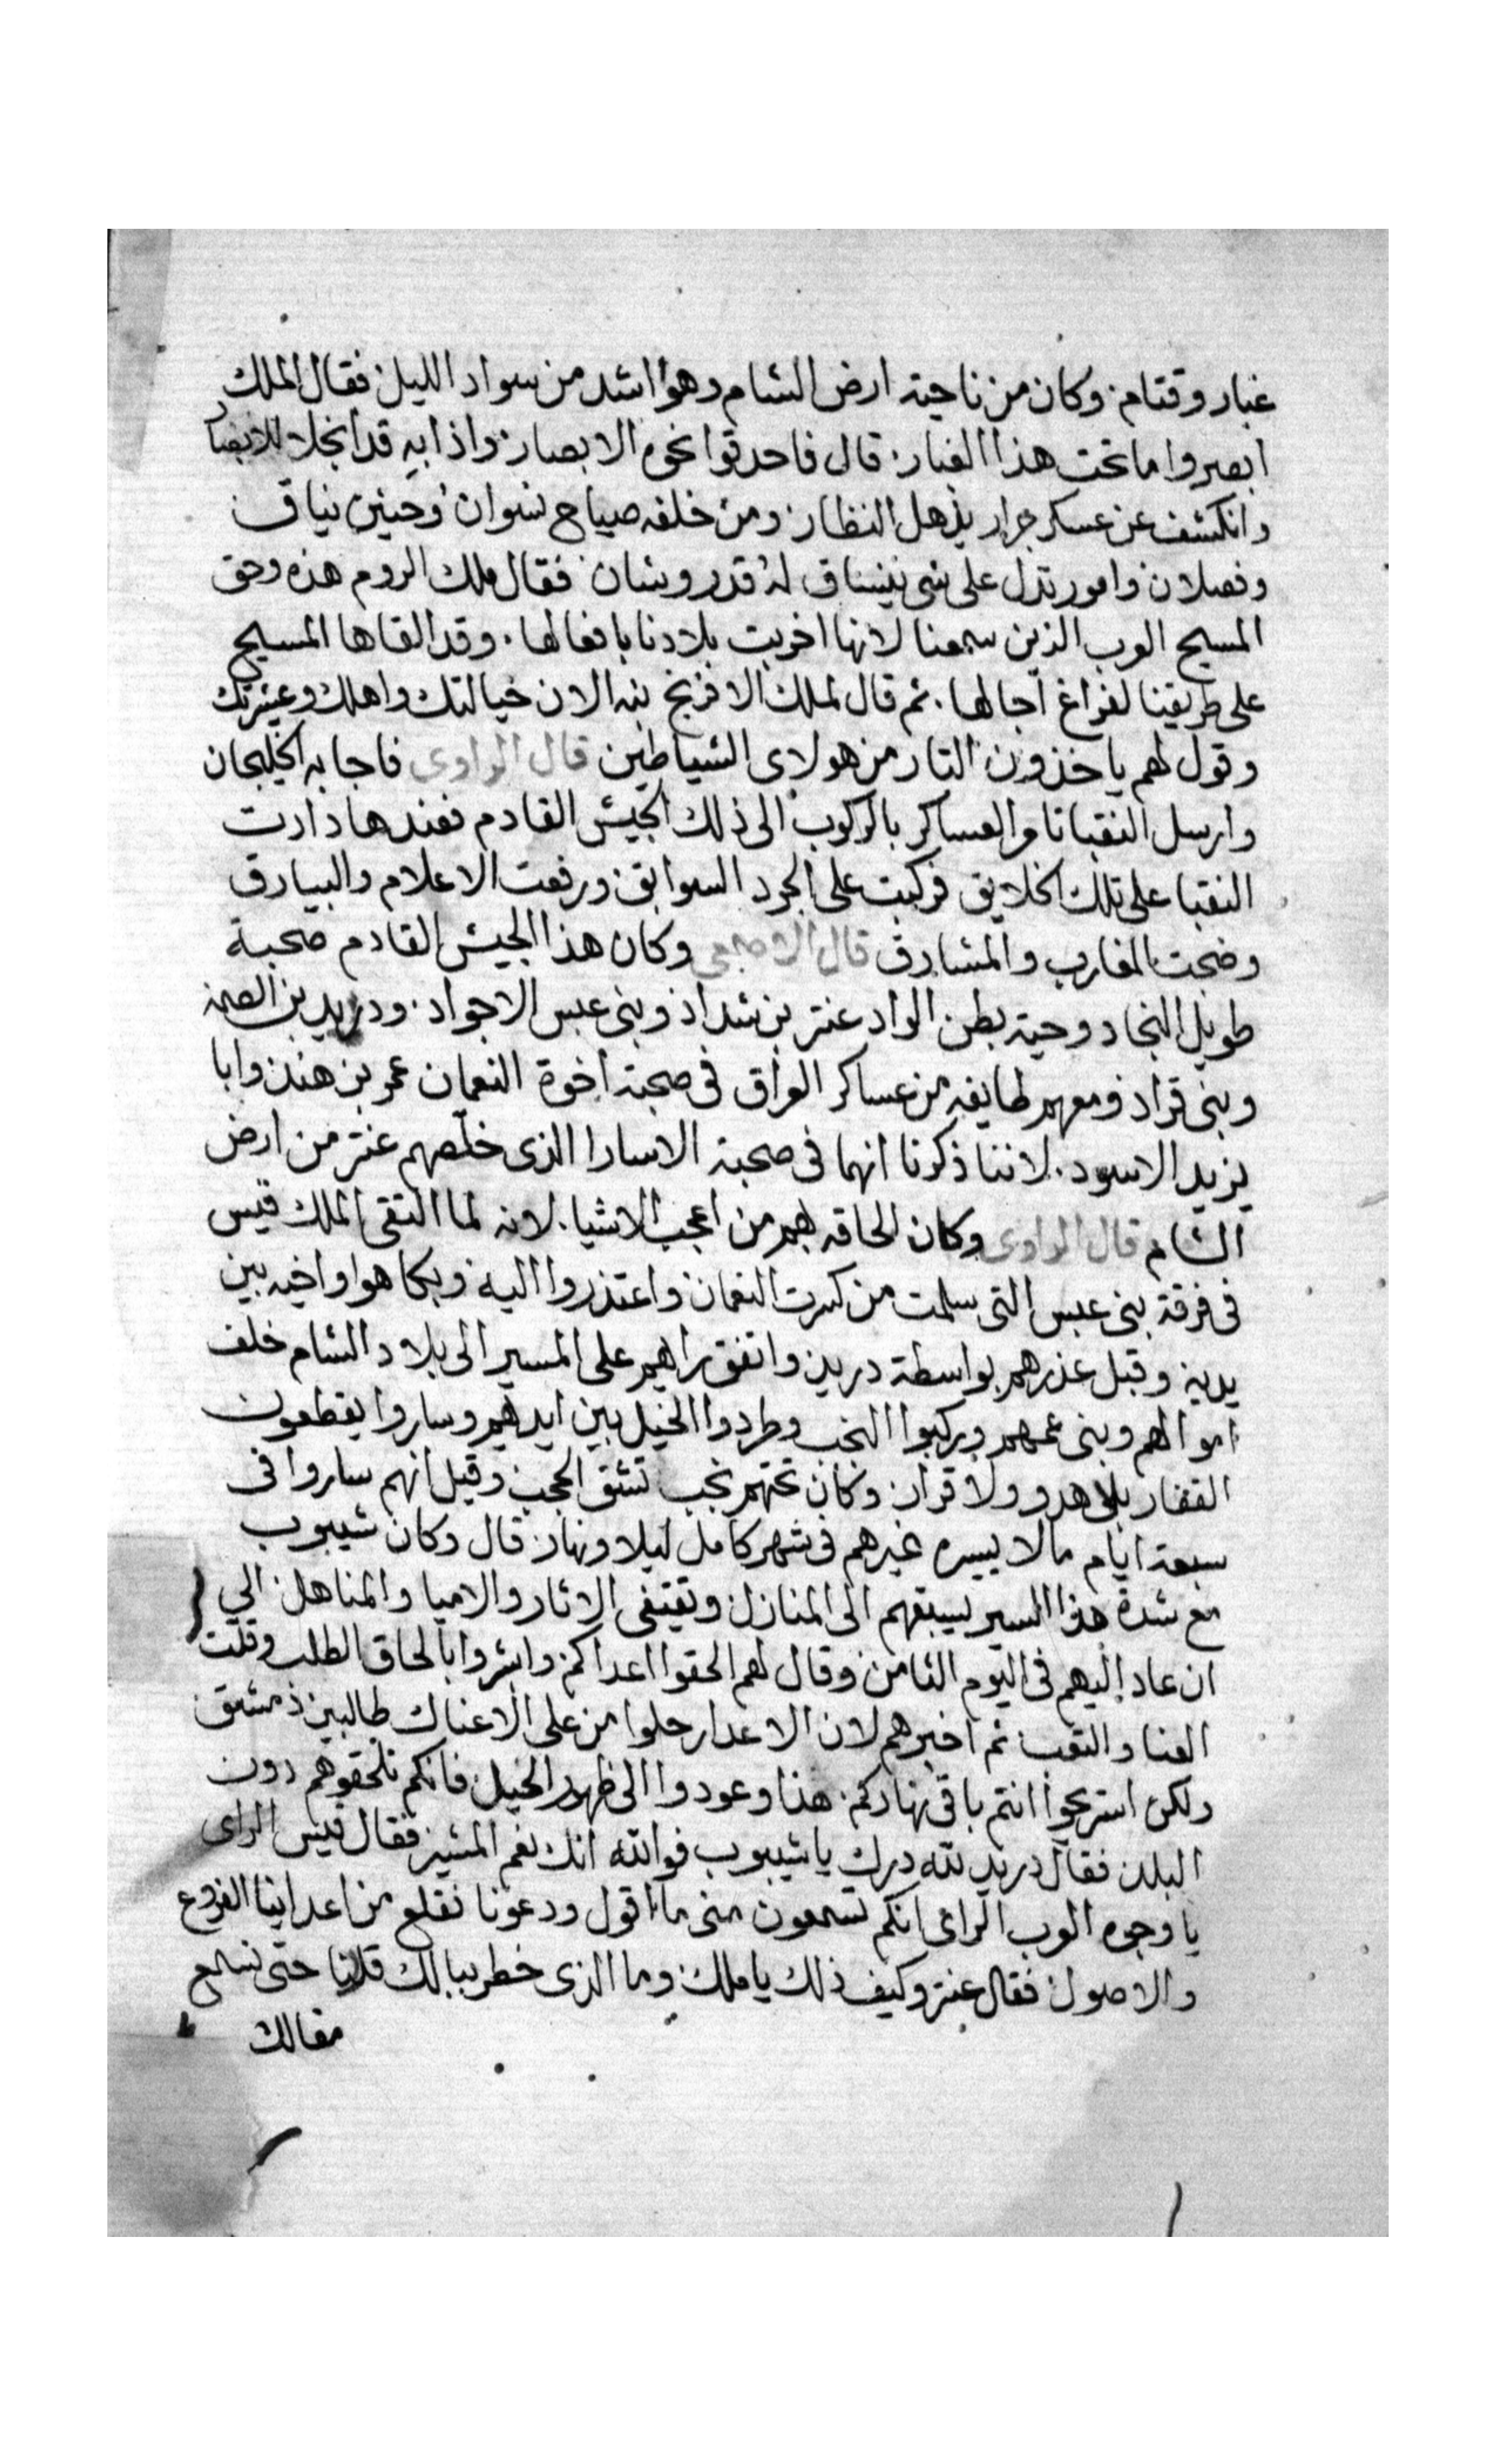 غبار وقتام وكان من ناحية ارض الشام وهو اشد من سواد الليل فقال الملك
ابصروا ما تحت هذا الغبار قال فاحدقوا نحوه الابصار واذا به قد انجلا للابصار
وانكشف عن عسكر جرار يذهل النظار ومن خلفه صياح نسوان وحنين نياق
وفصلان وامور تدل على شى ينساق له قدر وشان فقال ملك الروم هذه وحق
المسيح العرب الذين سمعنا لانها اخربت بلادنا بافعالها وقد القاها المسيح
على طريقنا لفراغ آجالها ثم قال لملك الافرنج نبه الان خيالتك واهلك وعشيرتك
وقول لهم ياخذون التار من هولاى الشياطين قال الراوى فاجابه الخيلجان
وارسل النقبا تامر العساكر بالركوب الى ذلك الجيش القادم فعندها دارت
النقبا على تلك الخلايق فركبت على الجرد السوابق ورفعت الاعلام والبيارق
وضجت المغارب والمشارق قال الاصمعى وكان هذا الجيش القادم صحبة
طويل النجاد وحية بطن الواد عنتر بن شداد وبنى عبس الاجواد ودريد بن الصمه
وبنى قراد ومعهم طايفه من عساكر العراق فى صحبة اخوة النعمان عمر بن هند وابا
يزيد الاسود لاننا ذكرنا انهما فى صحبة الاسارا الذى خلصهم عنتر من ارض
الشام قال الراوى وكان لحاقه بهم من اعجب الاشيا لانه لما التقى الملك قيس
فى فرقة بنى عبس التى سلمت من كسرت النعمان واعتذروا اليه وبكا هوا واخيه بين
يديه وقبل عذرهم بواسطة دريد واتفق راهيم على المسير الى بلاد الشام خلف
اموالهم وبنى عمهم وركبوا النجب وطردوا الخيل بين ايديهم وساروا يقطعون
القفار بلا هدو ولا قرار وكان تحتهم نجب تشق الحجب وقيل انهم ساروا فى
سبعة ايام مالا يسيره غيرهم فى شهر كامل ليلا ونهار قال وكان شيبوب
مع شدة هذا السير يسبقهم الى المنازل ويقتفى الاثار والاميا والمناهل الي
ان عاد اليهم فى اليوم الثامن وقال لهم الحقوا اعداكم وابشروا بالحاق الطلب وقلت
العنا والتعب ثم اخبرهم لان الاعدا رحلوا من على الاعناك طالبين دمشق
ولكن استريحوا انتم باقى نهاركم هذا وعودوا الى ظهور الخيل فانكم تلحقوهم دون
البلد فقال دريد لله درك يا شيبوب فوالله انك نعم المشير فقال قيس الراى
يا وجوه العرب الراى انكم تسمعون منى ما اقول ودعونا نقلع من اعداينا الفروع
والاصول فقال عنتر وكيف ذلك يا ملك وما الذى خطر ببالك قلنا حتى نسمع
مقالك